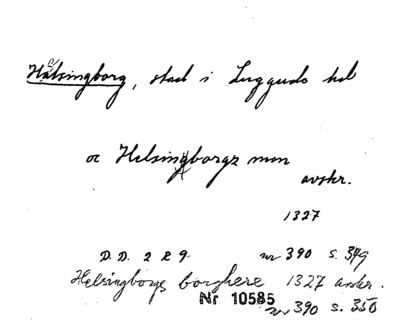 Hälsingborg, stad i Luggude hd
oc Helsingborgz men
avskr.
1327
D. D. 2 R 9 nr 390 s. 349
Helsingborgs borghere 1327 avskr.
Nr 10585
nr 390 s. 350